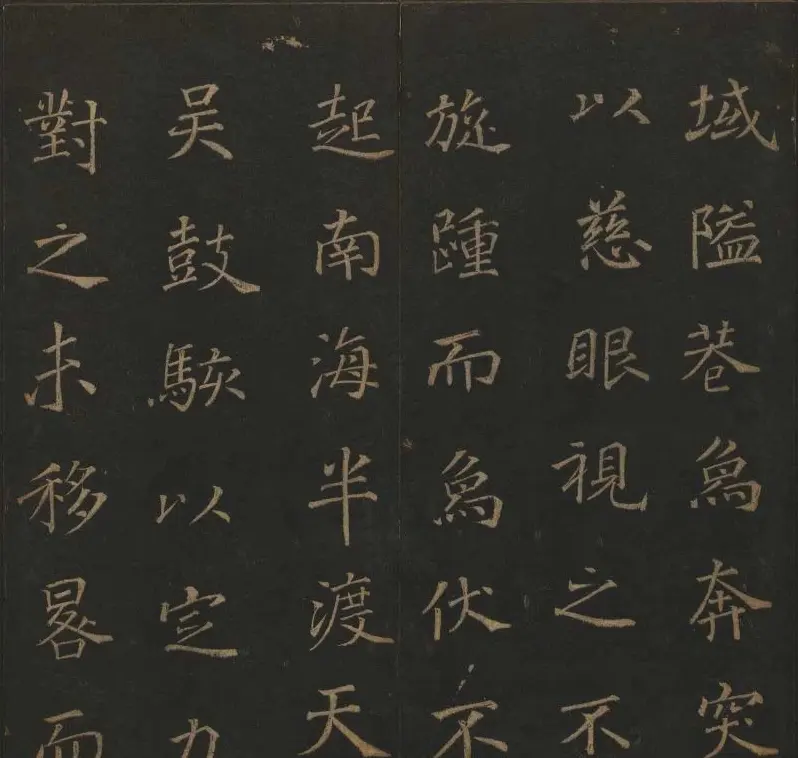 域隘巷象奔突
以慈眼視之不
旋踵而象伏不
起南海半渡天
吴鼓駭以定力
對之未移晷而